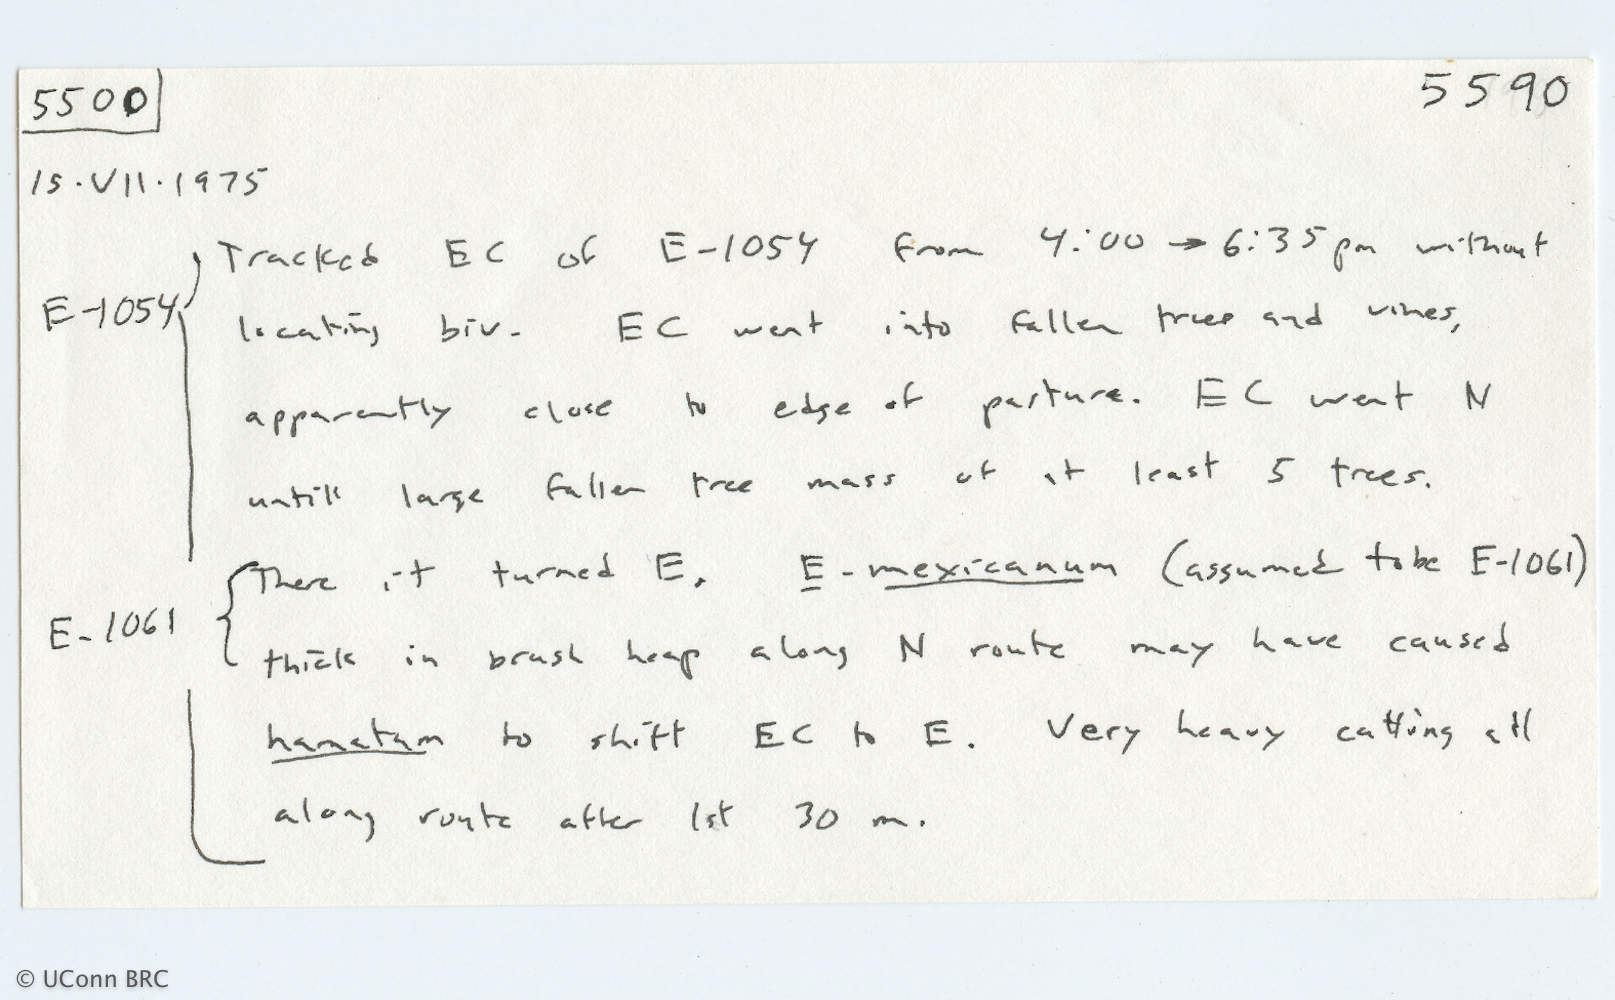 5500
5590
15.VII.1975
E-1054
Tracked EC of E-1054 from 4:00 → 6:35 pm without
locating biv. EC went into fallen trees and vines,
apparently close to edge of pasture. EC went N
untill large fallen tree mass of at least 5 trees.
E-1061
There it turned E. E-mexicanum (assumed to be E-1061)
thick in brush heap along N route may have caused
hamatum to shift EC to E. Very heavy cutting all
along route after 1st 30 m.
© UConn BRC